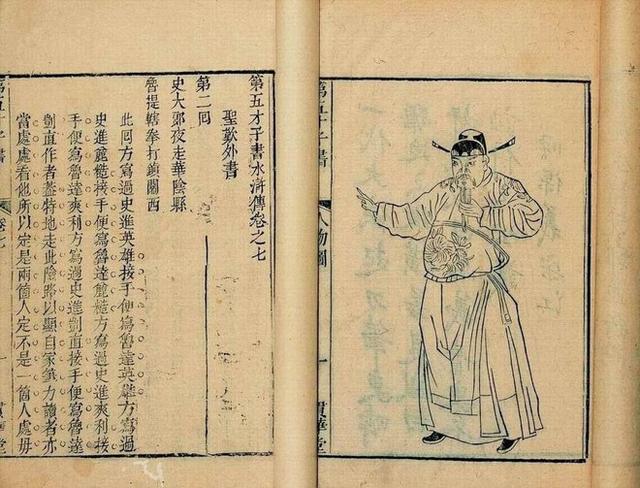 第五才子書
人物圖
一
貫華堂
第五才子書水滸傳卷之七
聖歎外書
第二回
史大郎夜走華陰縣
魯提轄拳打鎮關西
此回方寫過史進英雄接手便寫魯達英雄方寫過
史進麄糙接手便寫魯達麄糙方寫過史進爽利接
手便寫魯達爽利方寫過史進剴直接手便寫魯達
剴直作者蓋特地走此險路以顯自家筆力讀者亦
當處處看他所以定是兩箇人定不是一箇人處毋
第五才子書
卷七
一
貫華堂